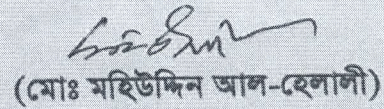 (মোঃ মহিউদ্দিন আল-হেলালী)